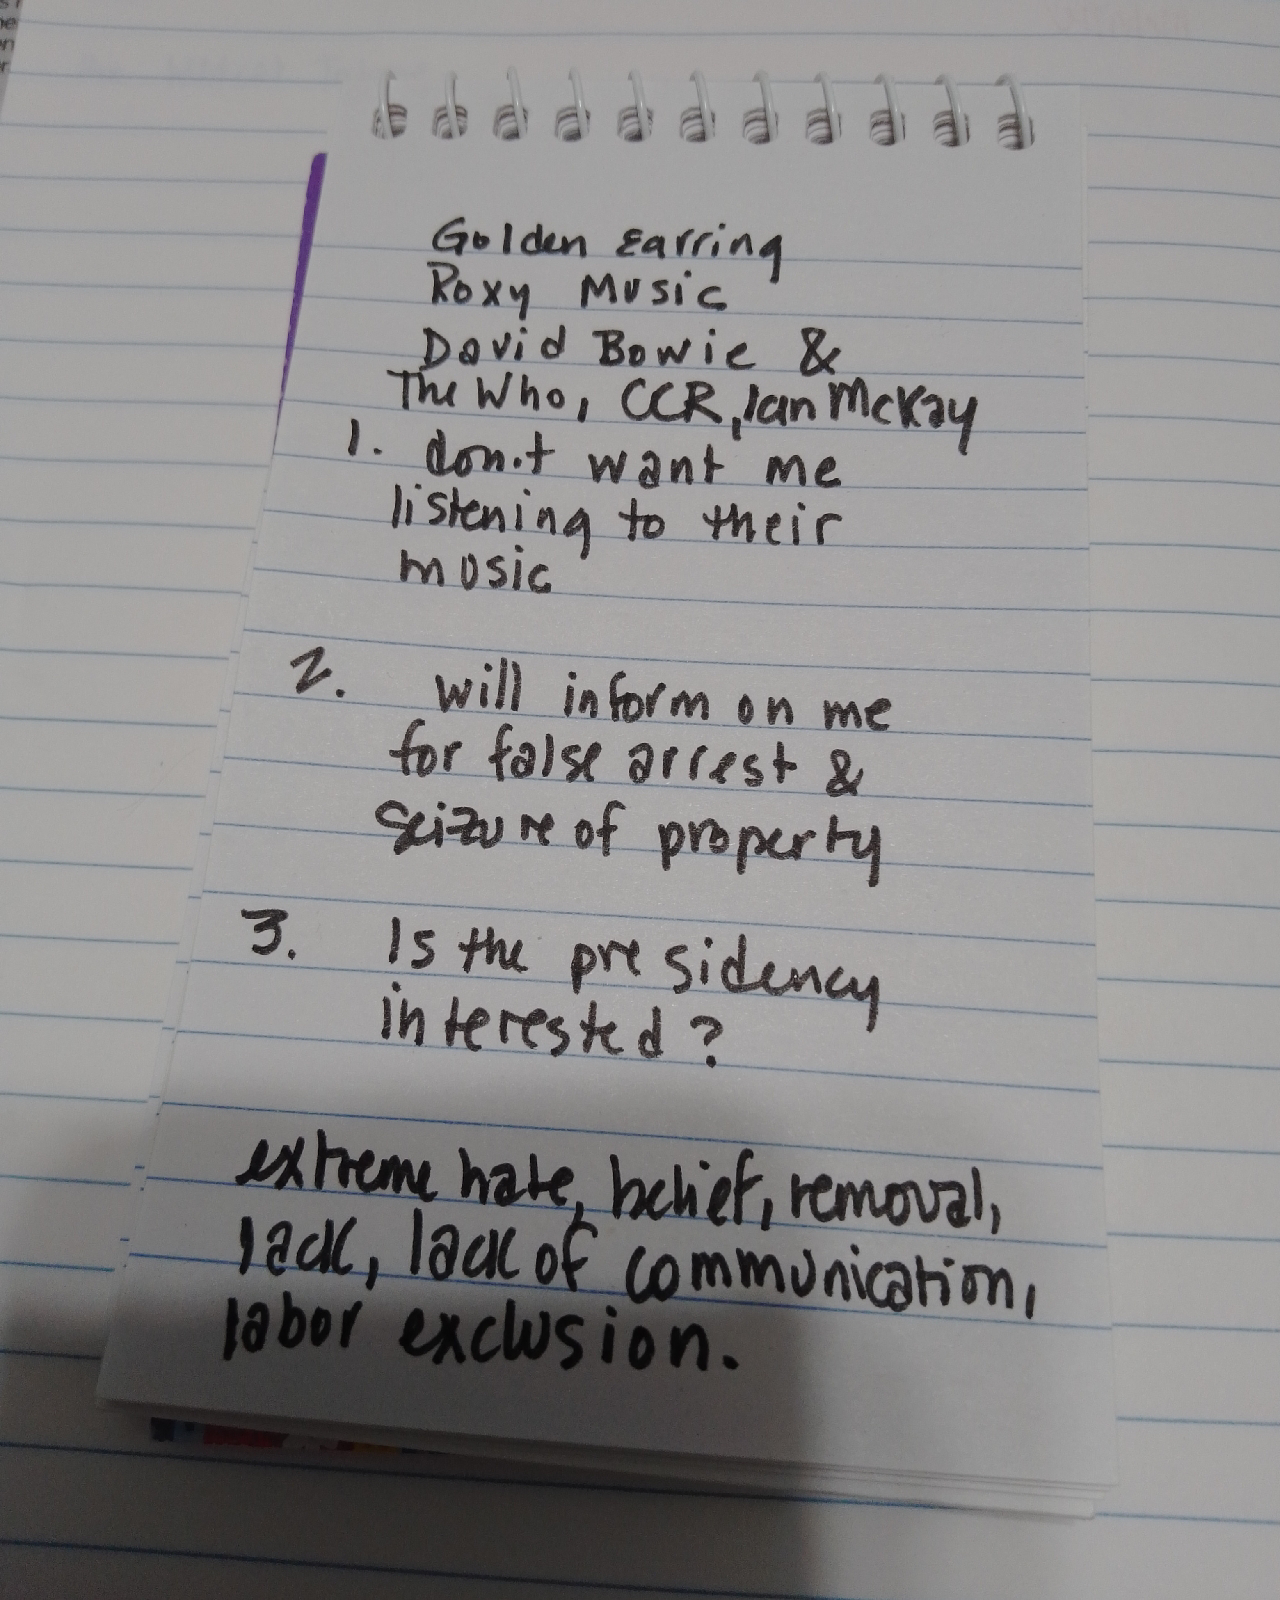 Golden Earring
Roxy Music
David Bowie &
The Who, CCR, Ian McKay
1. don't want me
listening to their
music
2. will inform on me
for false arrest &
seizure of property
3. Is the presidency
interested?
extreme hate, belief, removal,
lack, lack of communication,
labor exclusion.